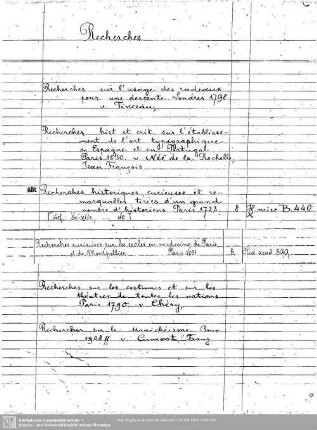 Recherches
Recherches sur l'usage des radeaux
pour une descente. Londres 1798
v. Tinseau,
Recherches hist. et crit. sur l'établisse-
ment de l'art typographique
en Espagne et en Portugal.
Paris 1830. v. Née de la Rochelle,
Jean François
Recherches historiques, curieuses et re-
marquables tirées d'un grand
nombre d'historiens. Paris 1723. 8 H. misc. B. 440
Recherches curieuses sur les écoles en médecine de Paris,
et de Montpellier. Paris 8
Recherches sur les costumes et sur les
théâtres de toutes les nations
Paris 1790. v. Chéry,
Recherches sur le Manichéisme. Brux.
1908 ff v. Cumont, Franz